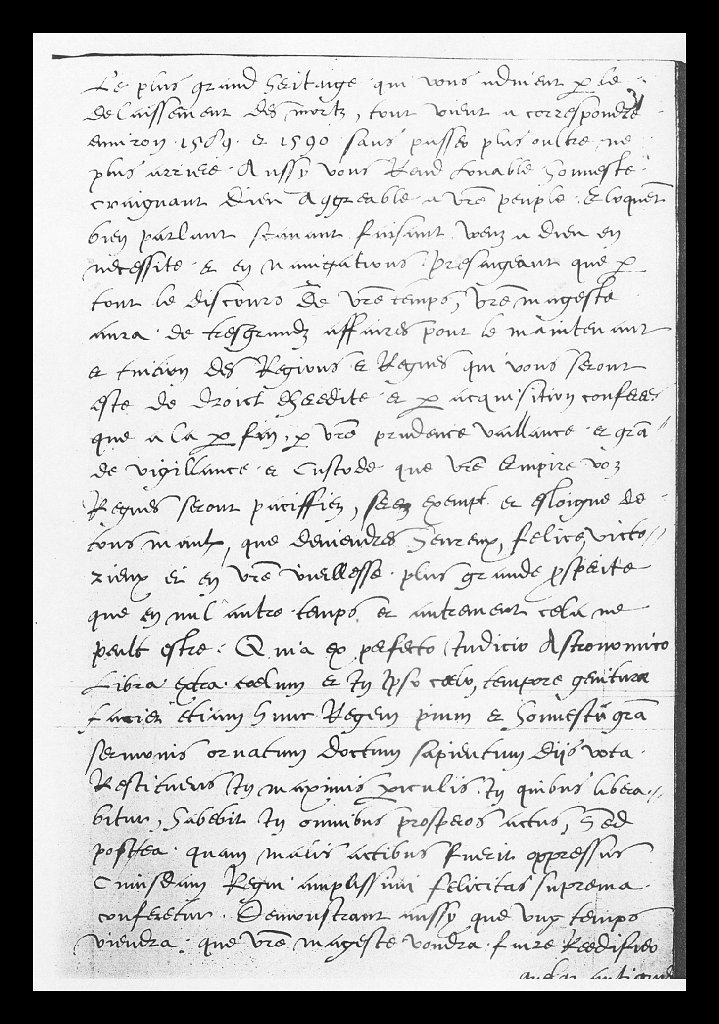 Le plus grand heritaige qui vous advient p le
delaissement des mortz, tout vient a correspondre
environ 1589. et 1590 sans passer plus oultre ne
plus arriere. Aussy vous Rend Louable honneste
craignant dieu Aggreable a vre peuple. Eloquent
bien parlant scavant faisant veuz a dieu en
necessite et en navigations. Presaigeant que p
tout le discours de vre temps, vre mageste
aura de tresgrandz affaires pour le maintenant
et tuicion des Regions et Regnes qui vous seront
este de droict dheredite et p acquisition conferez
que a la p fin, p vre prudence vaillance et gra
de vigillance et Custode que vre Empire voz
Regnes seront paciffiez, serez exempt et esloigne de
tous maulx, que deviendres heureux, felice, victo
rieux et en vre vieillesse plus grande psperite
que en nul autre temps et autrement cela ne
peult estre. Quia ex perfecto Iudicio Astronomico
Libra extra coelum et In Ipso coelo, tempore genitura
faciet etiam hunc Regem pium et honnestu gra
sermonis ornatum doctum sapientum diis vota
Restituens In maximis periculis In quibus libera
bitur, habebit In omnibus prosperos actus, Sed
postea quam malis actibus fuerit oppressus
Cuiusdam Regni amplissimi felicitas suprema
conferetur. Demonstrant aussy que ung temps
viendra que vre mageste vouldra faire Reedifier